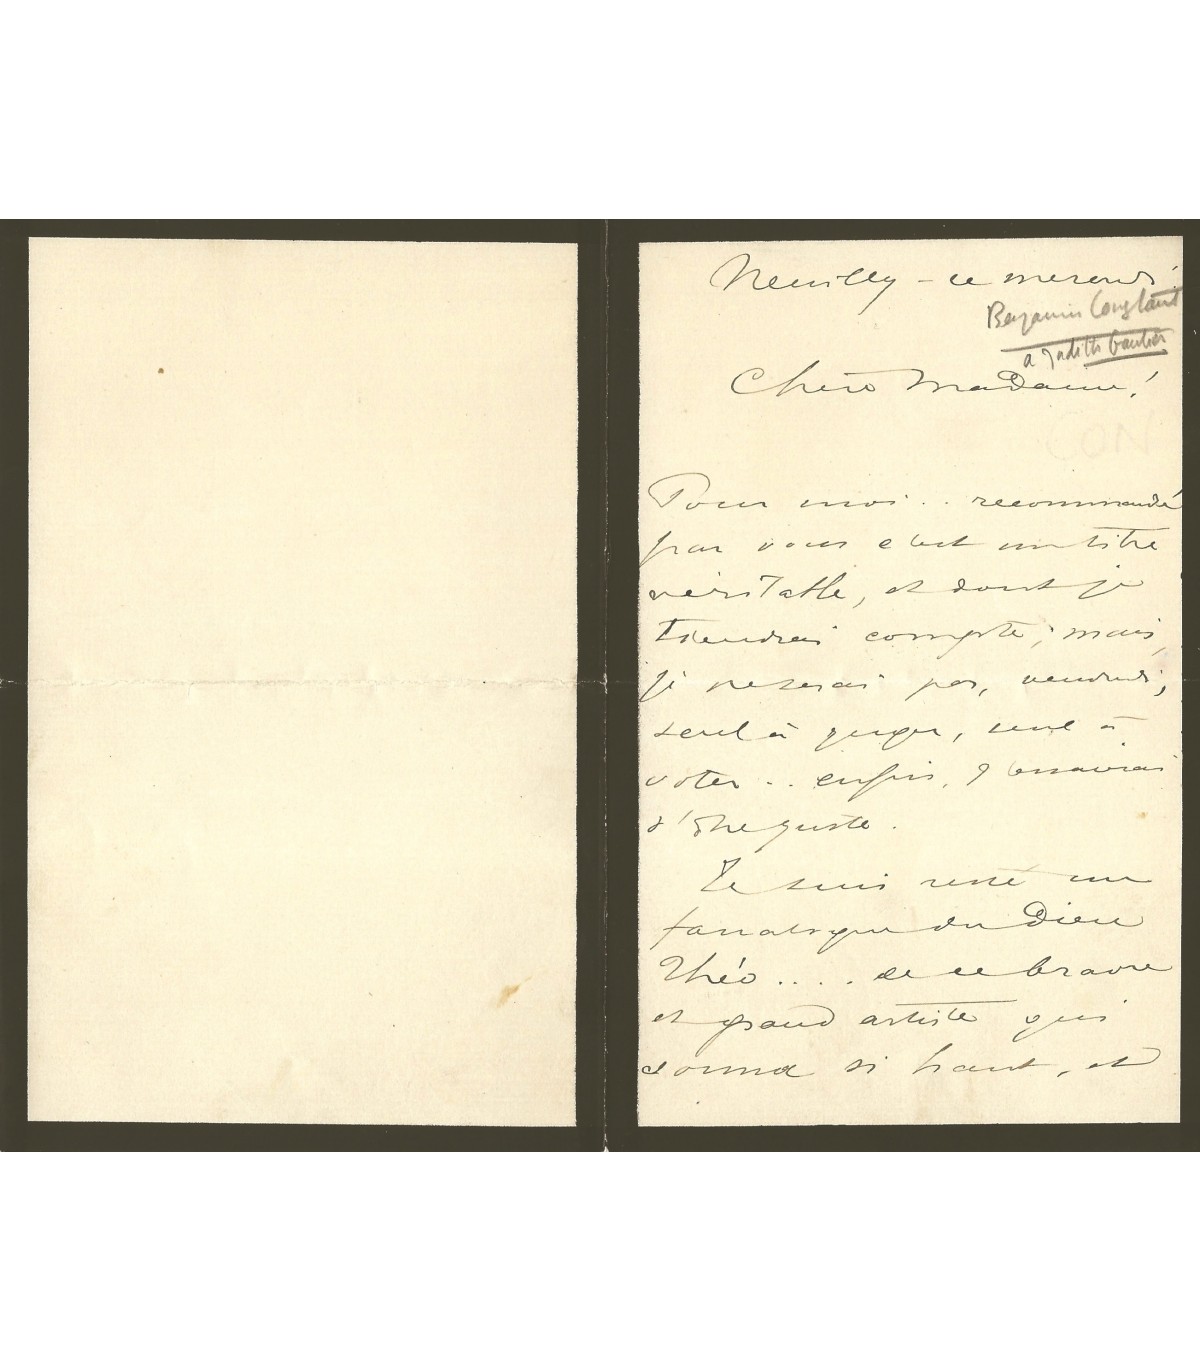 Neuilly – ce mercredi
Benjamin Constant
a Judith Gautier
Chère Madame!
Pour moi .. recommandé
par vous c'est un titre
véritable, et dont je
tiendrai compte; mais,
je ne serai pas, vendredi,
seul à juger, seul à
voter .. enfin, j'essaierai
d'être juste.
Je suis resté un
fanatique du Dieu
Théo .... de ce brave
et grand artiste qui
sonna si haut, et